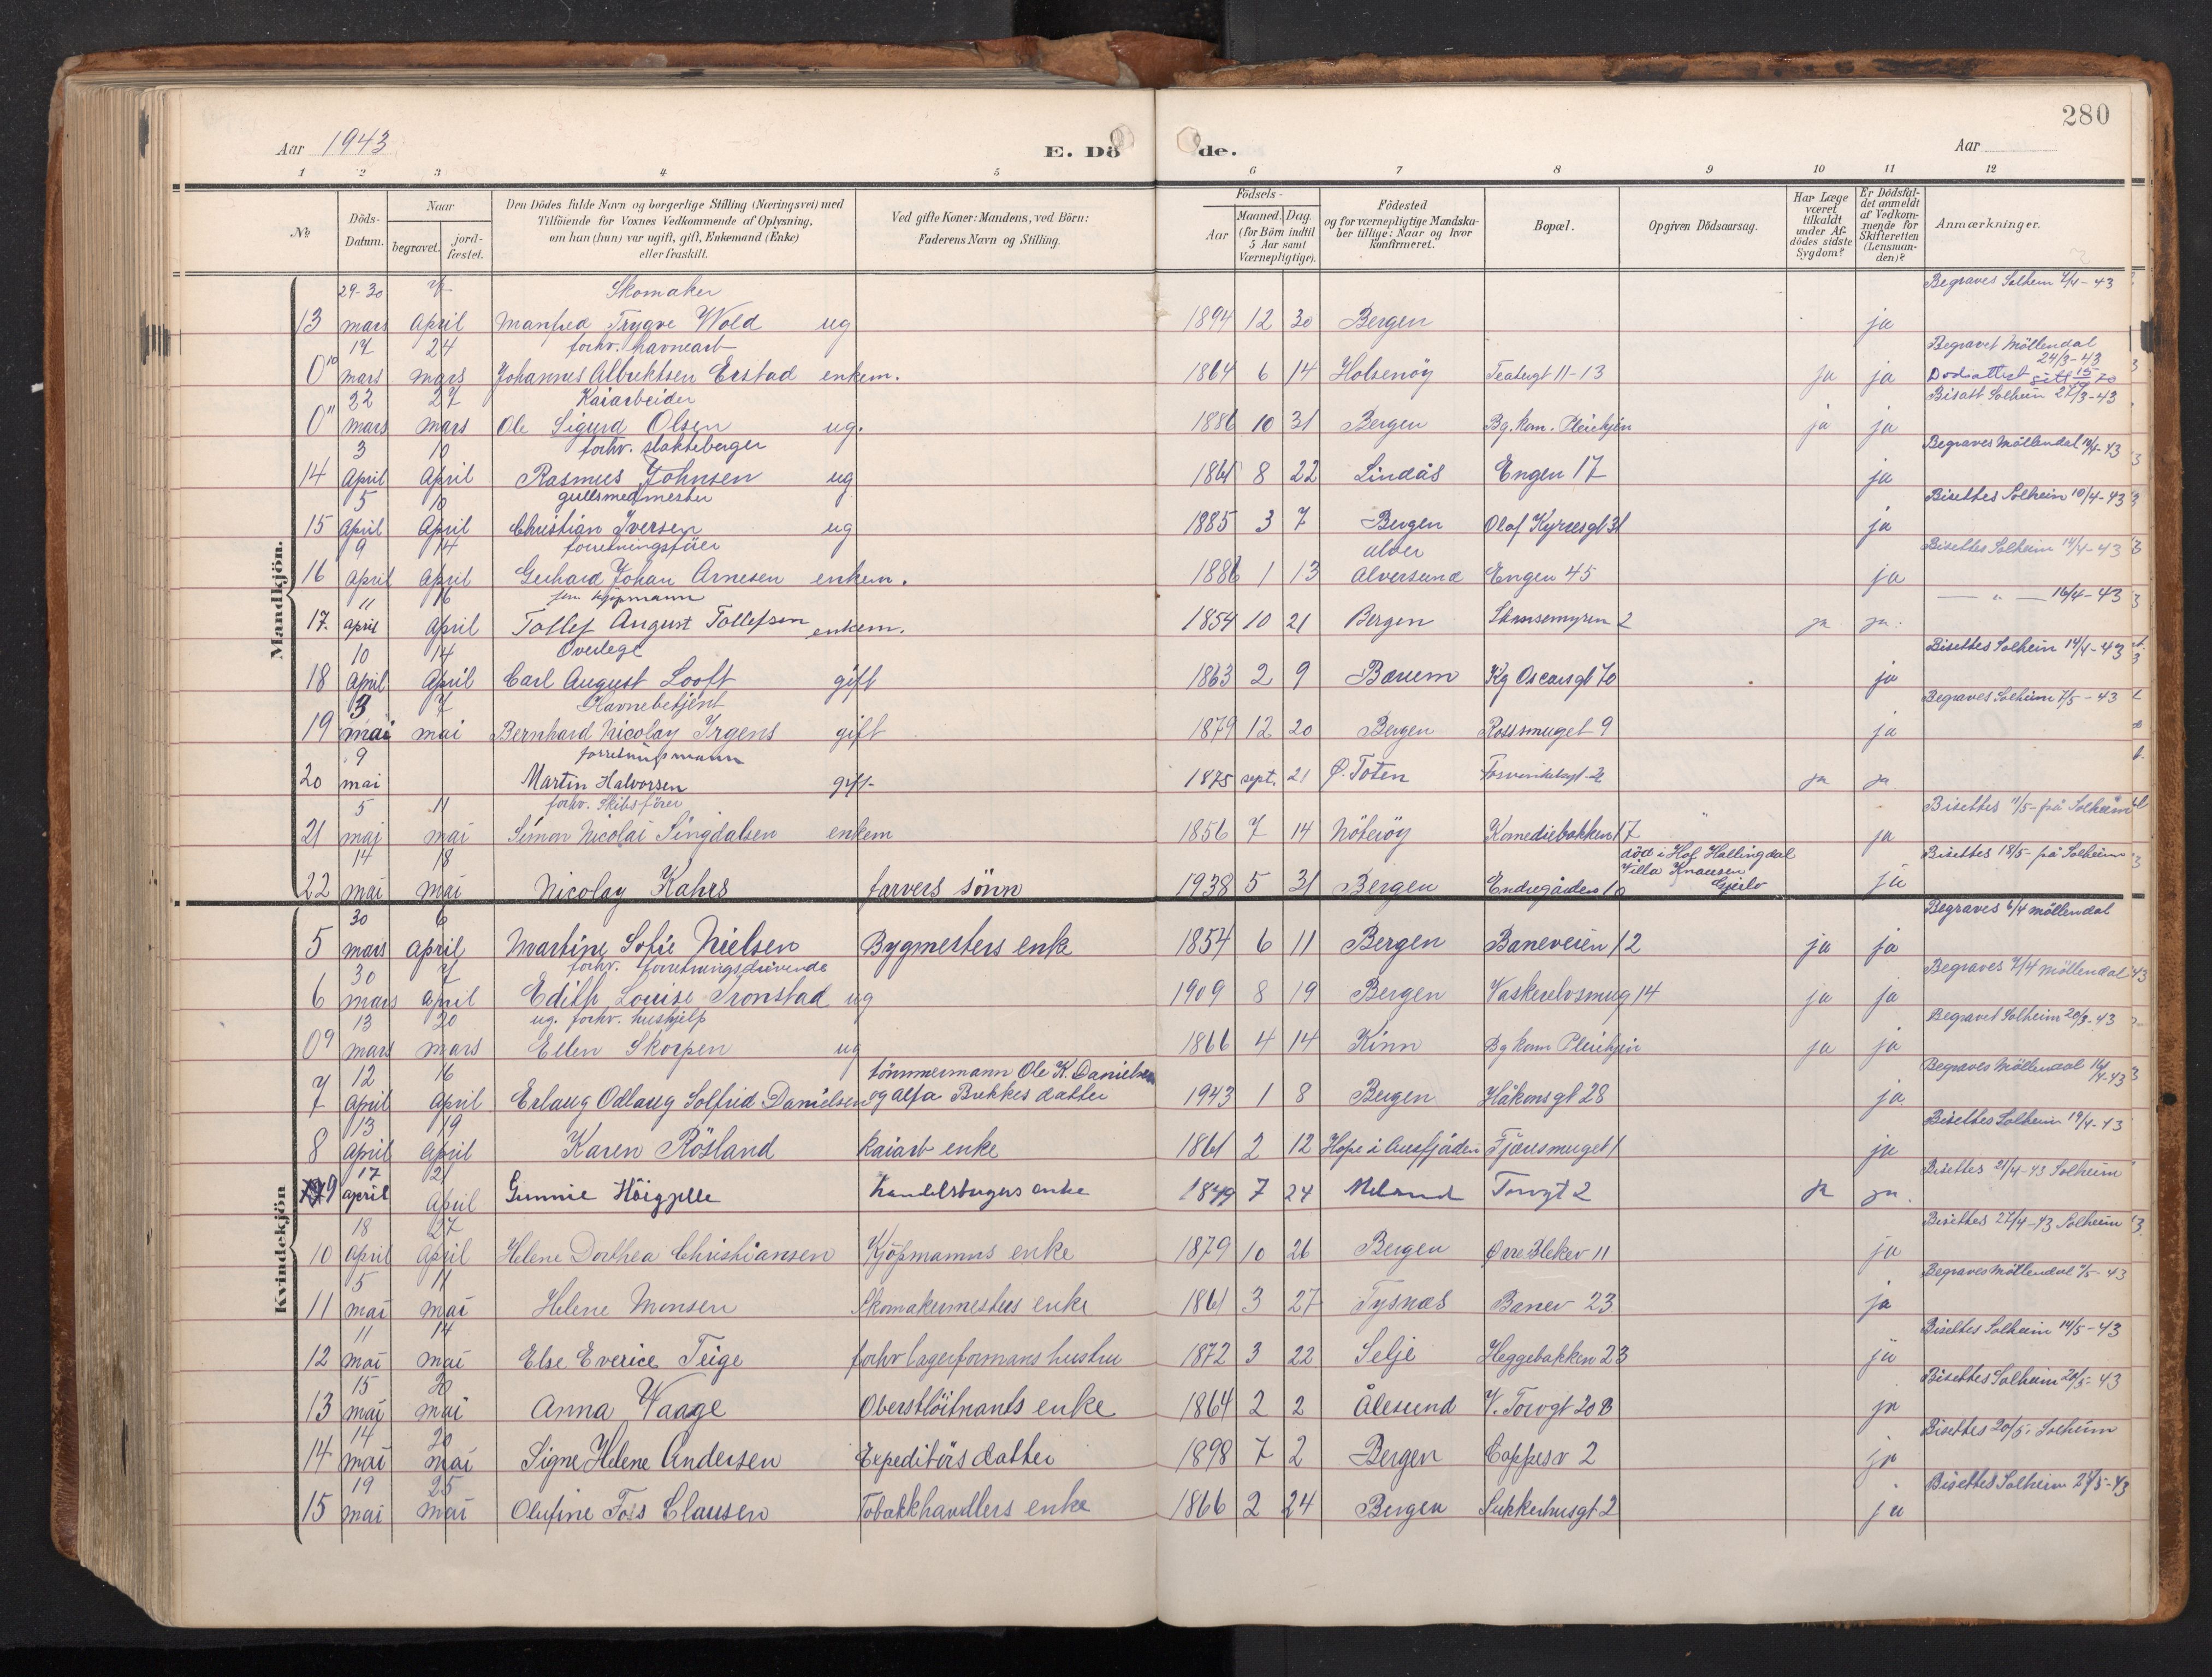 280
Aar 1943
E. Dö de.
Aar
1 2 3 4 5 6 7 8 9 10 11 12
№
Döds-Datum.
Naar begravet. jord-fæstet.
Den Dödes fulde Navn og borgerlige Stilling (Næringsvei) med Tilföiende for Voxnes Vedkommende af Oplysning, om han (hun) var ugift, gift, Enkemand (Enke) eller fraskilt.
Ved gifte Koner: Mandens, ved Börn: Faderens Navn og Stilling.
Födsels-
Aar
Maaned. Dag. (for Börn indtil 5 Aar samt Værnepligtige).
Födested og for værnepligtige Mandskaber tillige: Naar og hvor konfirmeret.
Bopæl.
Opgiven Dödsaarsag.
Har Læge været tilkaldt under Afdödes sidste Sygdom?
Er Dödsfaldet anmeldt af Vedkommende for Skifteretten (Lensmanden)?
Anmærkninger.
Mandkjön.
29-30 Skomaker Begraves Solheim 7/4-43
13 mars April Manfred Trygve Wold ug 1894 12 30 Bergen ja
17 24 forhv. havnearb Begravet Möllendal 24/3-43
0 10 mars mars Johannes Albrektsen Erstad enkem. 1864 6 14 Holsenöy Teatergt 11-13 ja ja Dödsattest
22 27 Kaiarbeider Bisatt Solheim 27/3-43
0 11 mars mars Ole Sigurd Olsen ug. 1886 10 31 Bergen Bg. kom. Pleiehjem ja ja
3 10 forhv. slakteborger Begraves Möllendal 10/4-43
14 April April Rasmus Johnsen ug 1861 8 22 Lindås Engen 17 ja
5 10 gullsmedmester Bisettes Solheim 10/4-43
15 April April Christian Iversen ug 1885 3 7 Bergen Olaf Kyrresgt 31 ja
9 14 forretningsförer alver Bisettes Solheim 14/4-43
16 April April Gerhard Johan Arnesen enkem. 1886 1 13 Alversund Engen 45 ja
11 16 fhv kjöpmann — " — 16/4-43
17. april April Tollef August Tollefsen enkem. 1854 10 21 Bergen Skansemyren 2 ja ja.
10 14 Overlege Bisettes Solheim 14/4-43
18 April April Carl August Looft gift 1863 2 9 Bærum Kg Oscarsgt 70 ja
3 7 Havnebetjent Begraves Solheim 7/5-43
19 mai mai Bernhard Nicolay Irgens gift 1879 12 20 Bergen Rossmuget 9 ja
9 forretningsmann
20 mai Martin Halvorsen gift 1875 sept. 21 Ø. Toten ja ja
5 11 forhv. Skibsförer Bisettes 11/5- frå Solheim
21 mai mai Simon Nicolai Singdalsen enkem 1856 7 14 Nöteröy Komediebakken 17 ja
14 18 död i Hof Hallingdal Bisettes 18/5- på Solheim
22 mai mai Nicolay Kahrs farvers sönn 1938 5 31 Bergen Endregården 10 Villa Knausen Geilo ja
Kvindekjön
30 6 Begraves 6/4 möllendal
5 mars april Martine Sofie Nielsen Bygmesters enke 1854 6 11 Bergen Baneveien 12 ja ja
30 7 forhv. forretningsdrivende Begraves 7/4 möllendal 43
6 mars april Edith Louise Tronstad ug 1909 8 19 Bergen Vaskerelvsmug 14 ja ja
13 20 ug. forhv. hushjelp Begravet Solheim 20/3-43
0 9 mars mars Ellen Skorpen ug 1866 4 14 Kinn Bg kom Pleiehjem ja ja
12 16 tömmermann Ole K. Danielsen Begraves Möllendal 16/4-43
7 April April Erlaug Odlaug Solfrid Danielsen og Alfa Brekkes datter 1943 1 8 Bergen Håkonsgt 28 ja
13 19 Bisettes Solheim 19/4-43
8 April April Karen Rösland kaiarb enke 1861 2 12 Hope i Austfjorden Fjæresmuget 1 ja
17 21 Bisettes 21/4-43 Solheim
9 april April Gunnie handelsborgers enke 1849 7 24 Meland Torvgt 2 ja ja.
18 27 Bisettes 27/4-43 Solheim
10 April April Helene Dorthea Christiansen Kjöpmanns enke 1879 10 26 Bergen Øvre Blekev 11 ja
5 11 Begraves Möllendal 11/5-43
11 mai mai Helene Monsen Skomakermesters enke 1861 3 27 Tysnæs Banev 23 ja
11 14 Bisettes Solheim 14/5-43
12 mai mai Else Everice Teige forhv lagerformans hustru 1872 3 22 Selje Heggebakken 23 ja
15 20 Bisettes Solheim 20/5-43
13 mai mai Anna Waage Oberstlöitnants enke 1864 2 2 Ålesund V. Torvgt 20 B ja
14 20 Bisettes 20/5. Solheim
14 mai mai Signe Helene Andersen Expeditörs datter 1898 7 2 Bergen Cappesv 2 ja
19 25 Bisettes Solheim 25/5-43
15 mai mai Olufine Foss Clausen Tobakkhandlers enke 1866 2 24 Bergen Sukkerhusgt 2 ja